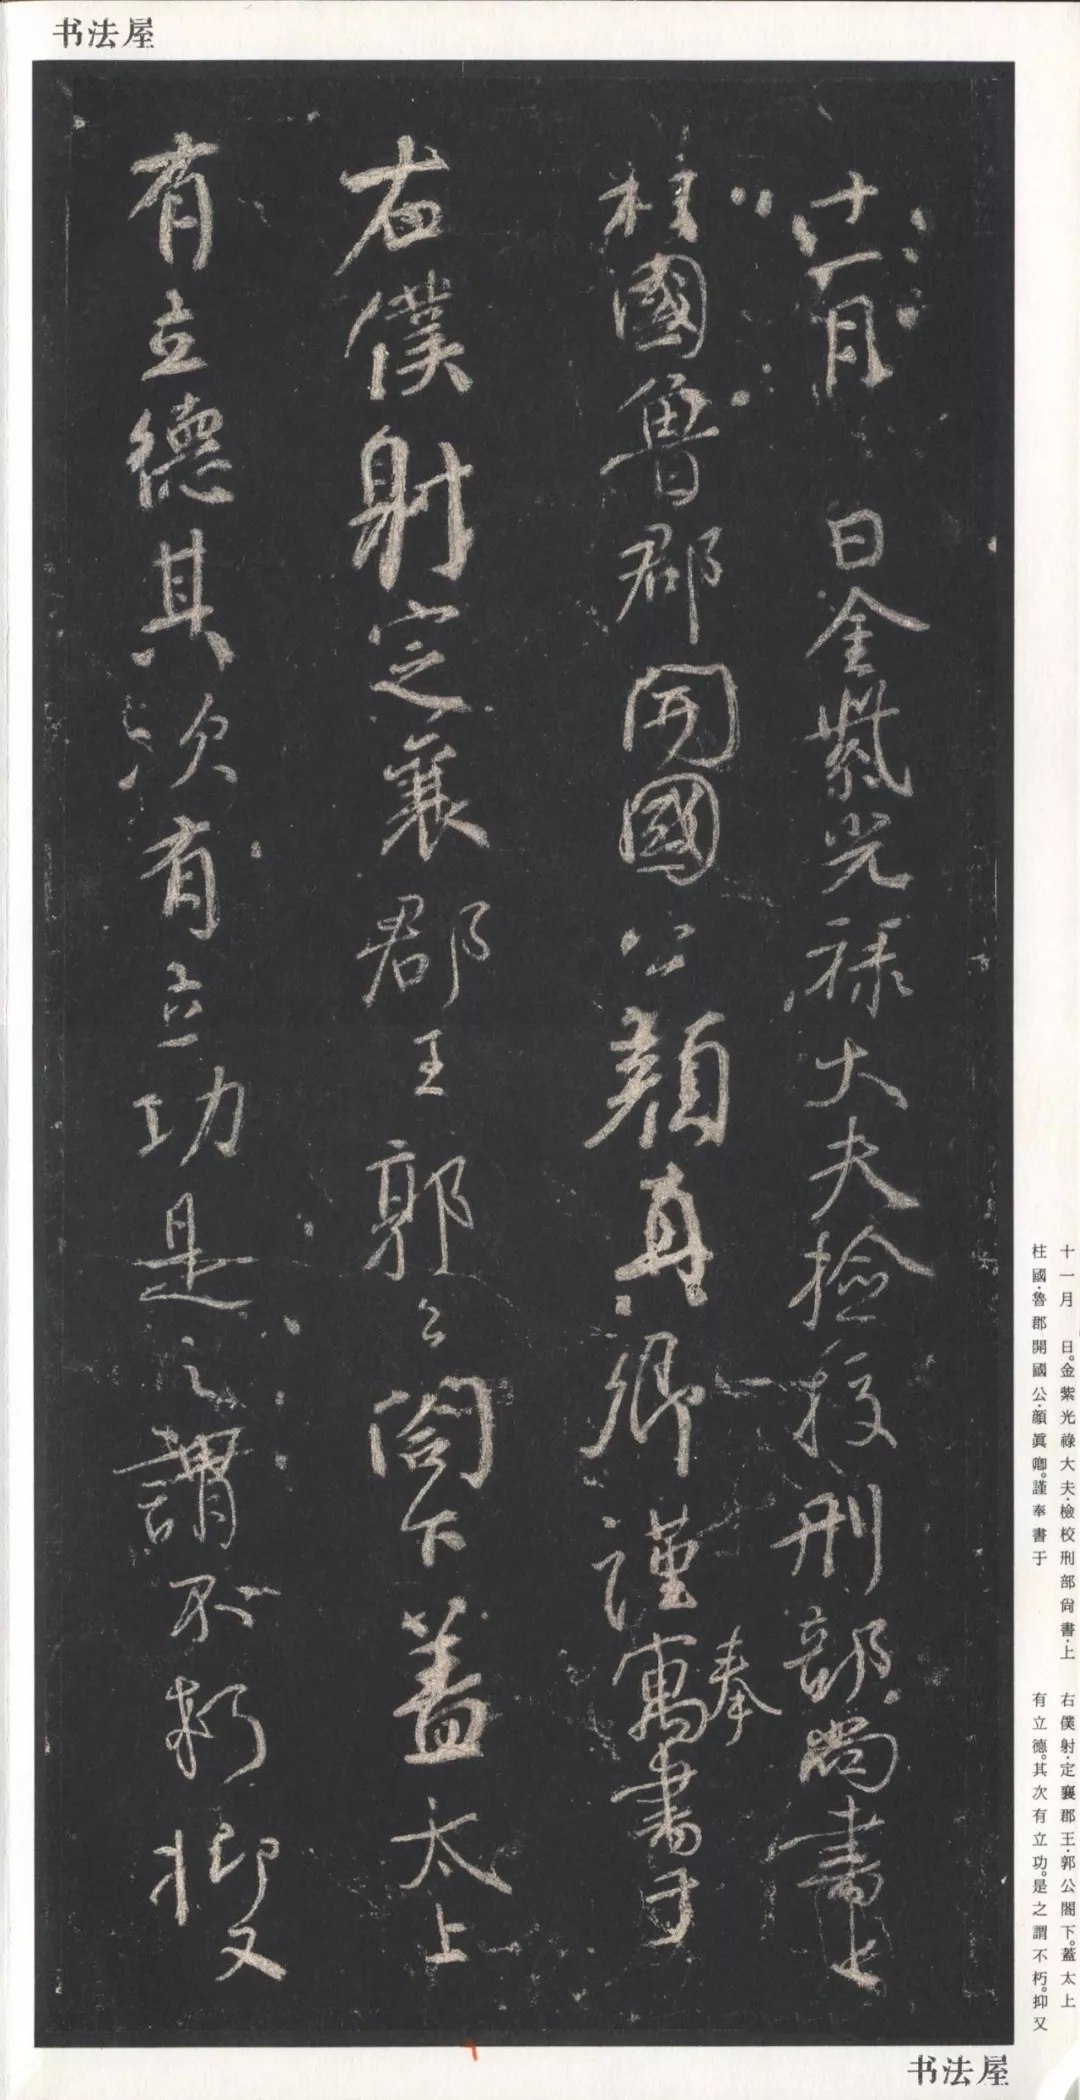 书法屋
十一月 日金紫光祿大夫檢校刑部尚書上
柱國魯郡開國公顏真卿謹寓奉書于
右僕射定襄郡王郭公閤下蓋太上
有立德其次有立功是之謂不朽抑又
十一月 日。金紫光祿大夫·檢校刑部尚書·上
柱國·魯郡開國公·顏眞卿。謹奉書于
右僕射·定襄郡王·郭公閣下。蓋太上
有立德。其次有立功。是之謂不朽。抑又
书法屋